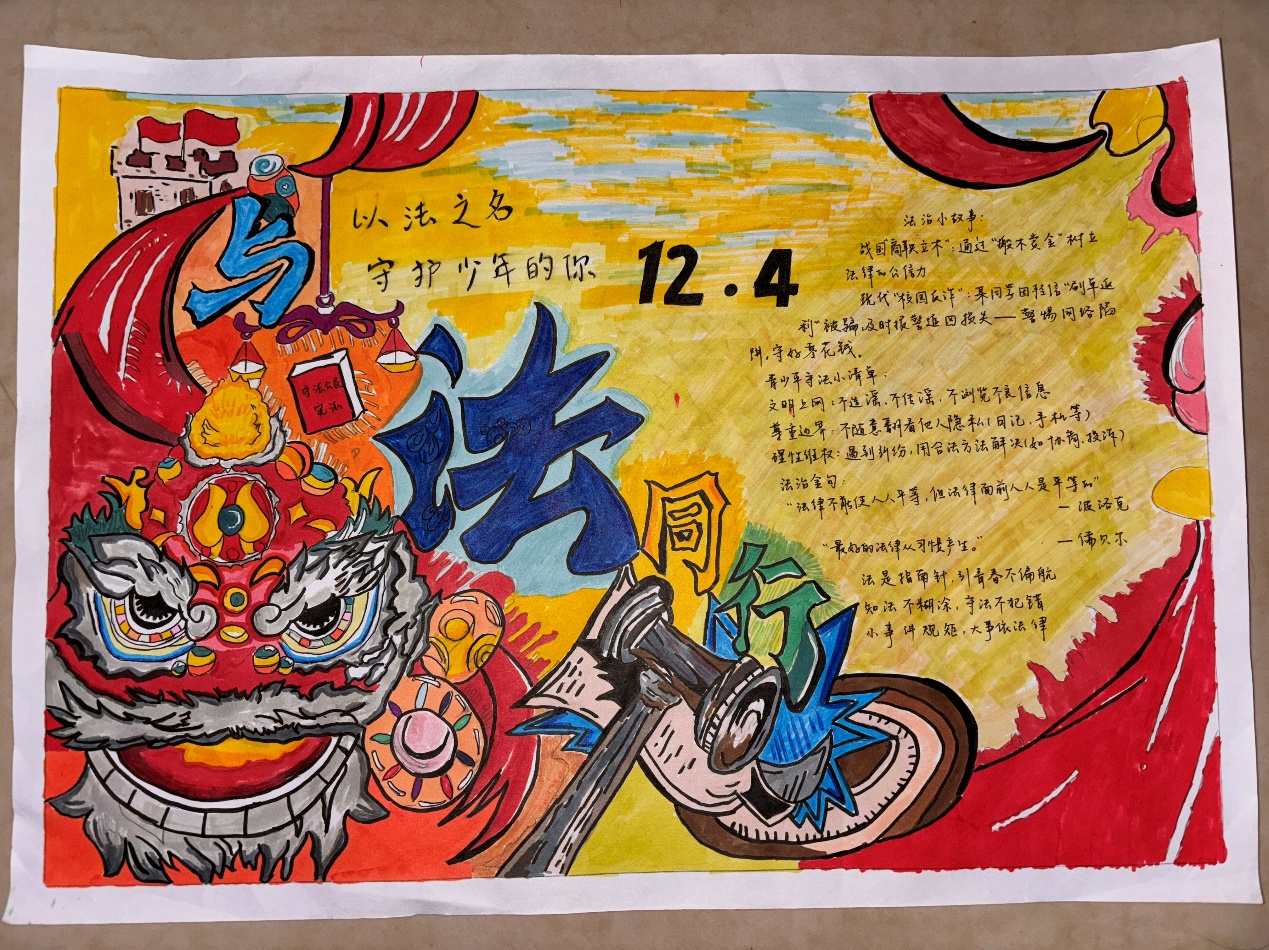 与
法
同
行
以法之名
守护少年的你
12.4
守法公民
宪法
法治小故事：
战国“商鞅立木”：通过“搬木赏金”树立
法律的公信力
现代“校园反诈”：某同学因轻信“刷单返
利”被骗，及时报警追回损失——警惕网络陷
阱，守好零花钱。
青少年守法小清单：
文明上网：不造谣、不传谣、不浏览不良信息
尊重边界：不随意翻看他人隐私（日记、手机等）
理性维权：遇到纠纷，用合法方法解决（如协商、投诉）
法治金句：
“法律不能使人人平等，但法律面前人人是平等的”
—波洛克
“最好的法律从习惯产生。”
—儒贝尔
法是指南针，引青春不偏航
知法不糊涂，守法不犯错
小事讲规矩，大事依法律